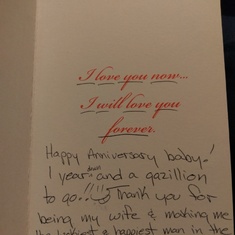 I love you now...
I will love you
forever.
Happy Anniversary baby!
1 year down and a gazillion
to go!! Thank you for
being my wife & making me
the luckiest & happiest man in the